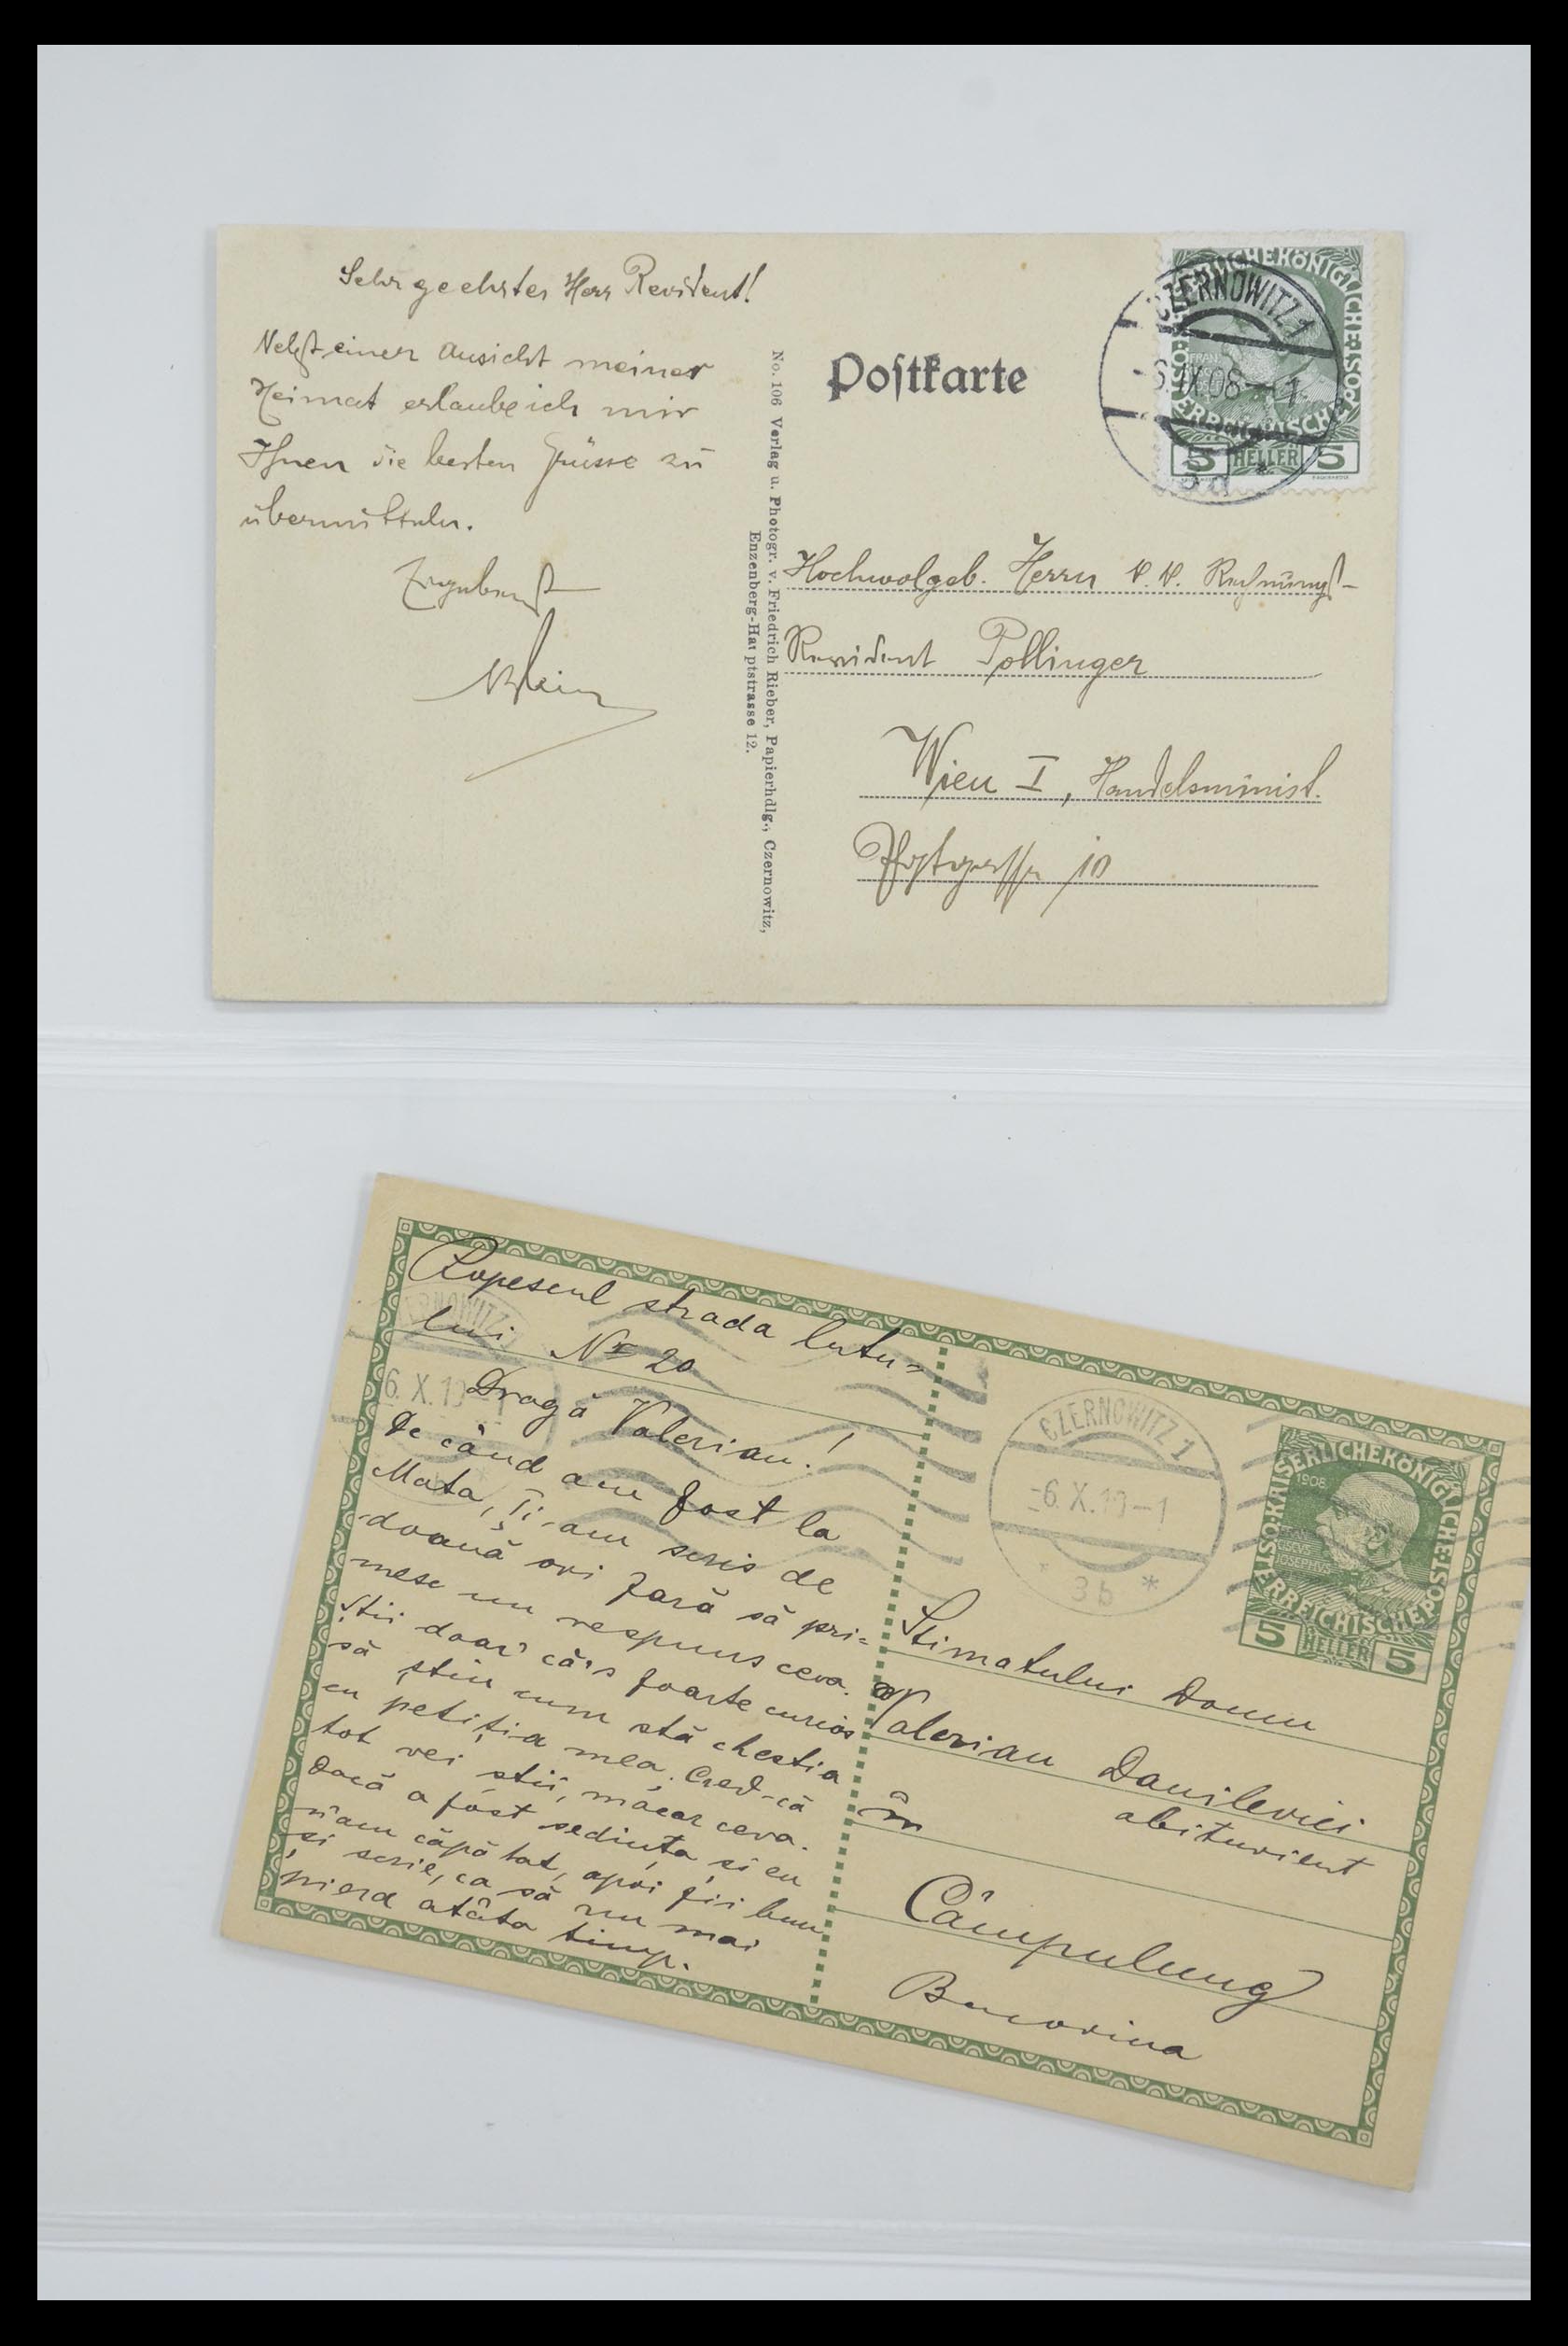 Sehr geehrter Herr Revident!
Nebst einer Ansicht meiner
Heimat erlaube ich mir
Ihnen die besten Grüsse zu
übermitteln.
Ergebenst
No. 106 Verlag u. Photogr. v. Friedrich Rieber, Papierhdlg., Czernowitz,
Enzenberg-Hauptstrasse 12.
Poſtkarte
CZERNOWITZ 1
6. IX. 08
KAISERLICHE KÖNIGLICHE ÖSTERREICHISCHE POST
5 HELLER 5
Hochwolgeb. Herrn k. k. Rechnungs-
Revident Pollinger
Wien I, Handelsminist.
Postgasse 10
strada lutu-
lui No 20
Dragă Valerian!
De când am fost la
Mata, Ți-am scris de
douuă ori fară să pri=
mesc un respuns ceva.
Știi doar că's foarte curios
să știu cum stă chestia
cu petiția mea. Cred-că
tot vei ști, măcar ceva.
Dacă a fost sedința și eu
n'am căpătat, apoi fii bun
și scrie, ca să nu mai
pierd atâta timp.
CZERNOWITZ 1
6. X. 10
CZERNOWITZ 1
-6. X. 10-1
* 3b *
KAISERLICHE KÖNIGLICHE ÖSTERREICHISCHE POST
1908
JOSEPHVS
5 HELLER 5
Stimatului Domn
Valerian Danilevici
în abiturient
Câmpulung
Bucovina